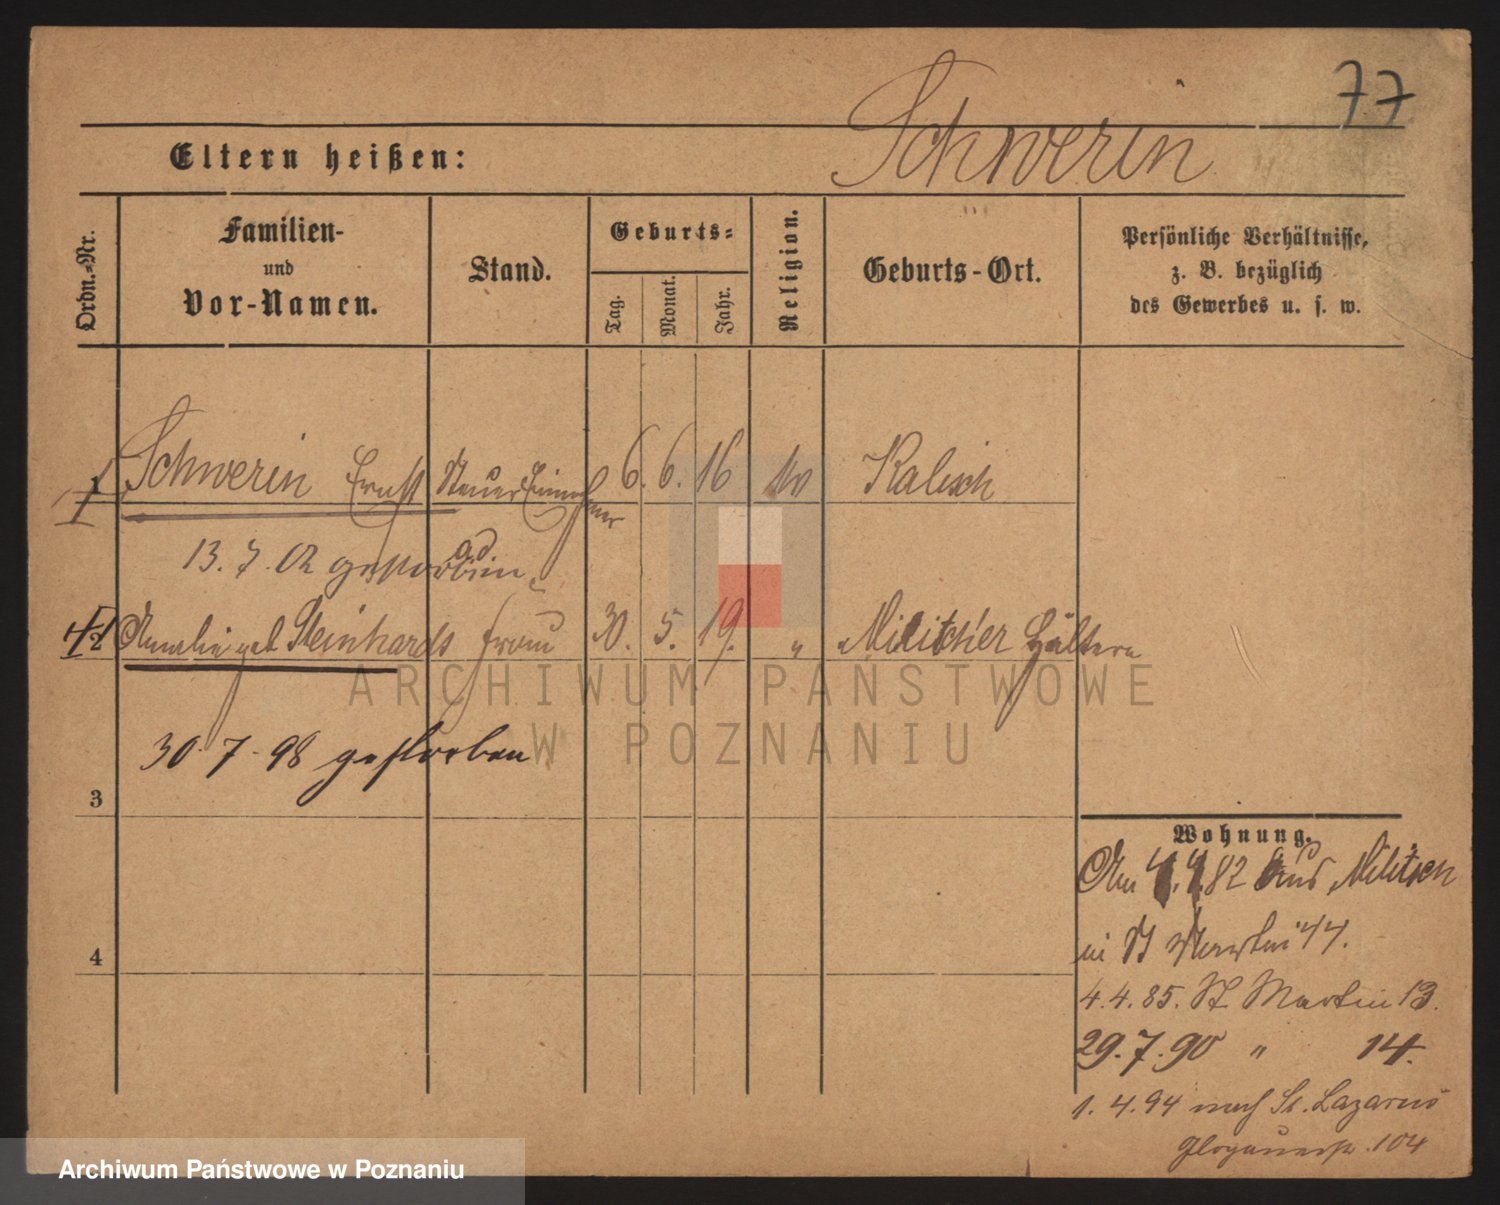 77
Schwerin
Eltern heißen:
Ordn.=Nr.
Familien-
und
Vor-Namen.
Stand.
Geburts=
Tag.
Monat.
Jahr.
Religion.
Geburts-Ort.
Persönliche Verhältnisse,
z. B. bezüglich
des Gewerbes u. s. w.
1 Schwerin Ernst Steuer Einnehmer 6. 6. 16 Kalisch
a.d.
13. 7. 02 gestorben
2 Amalie geb Steinhards Frau 30. 5. 19. " Militcher
30. 7. 98 gestorben
3
4
Wohnung.
Am 4.4.82 aus Militsch
in St Martin 44.
4.4.85. St Martin 13.
29.7.90 " 14.
1.4.94 nach St. Lazarus
Glogauerstr. 104
ARCHIWUM PAŃSTWOWE
W POZNANIU
Archiwum Państwowe w Poznaniu